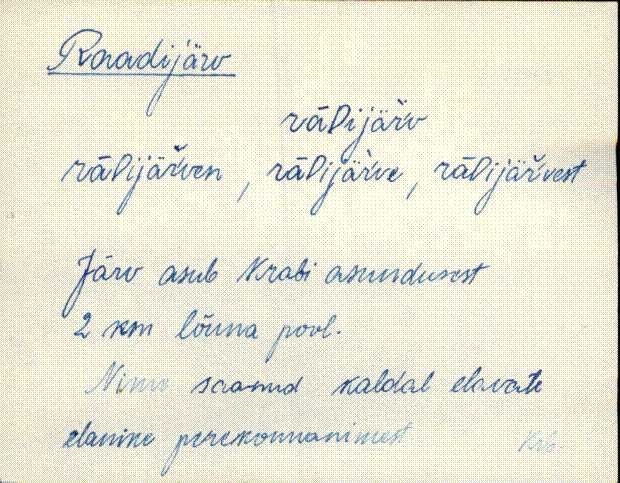 Raadijärv
rāDijäŕv
rāDijäŕven, rāDijäŕve, rāDijäŕvest
Järv asub Krabi asundusest
2 km lõuna pool.
Nimi saanud kaldal elavate
elanike perekonnanimest